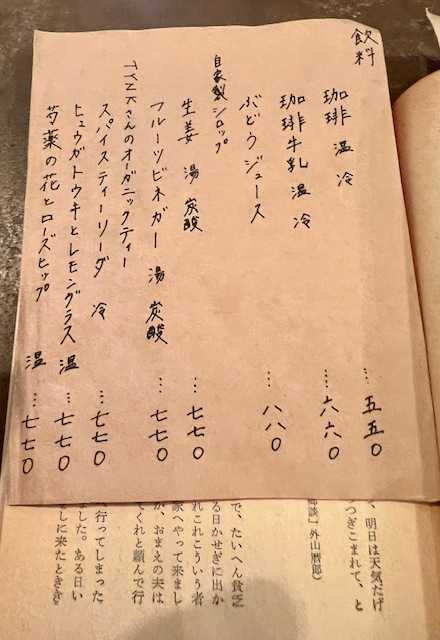 飲料
珈琲 温 冷 … 五五〇
珈琲牛乳 温 冷 … 六六〇
ぶどうジュース … 八八〇
自家製シロップ
生姜 湯 炭酸 … 七七〇
フルーツビネガー 湯 炭酸 … 七七〇
TYNKさんのオーガニックティー
スパイスティーソーダ 冷 … 七七〇
ヒュウガトウキとレモングラス 温 … 七七〇
芍薬の花とローズヒップ 温 … 七七〇
、明日は天気だけ
つぎこまれて、と
談』外山暦郎)
で、たいへん貧
る日かせぎに出か
れこれこういう者
家へやって来まし
が、おまえの夫は
てくれと頼んで行
行ってしまった
ました。ある日い
しに来たときき